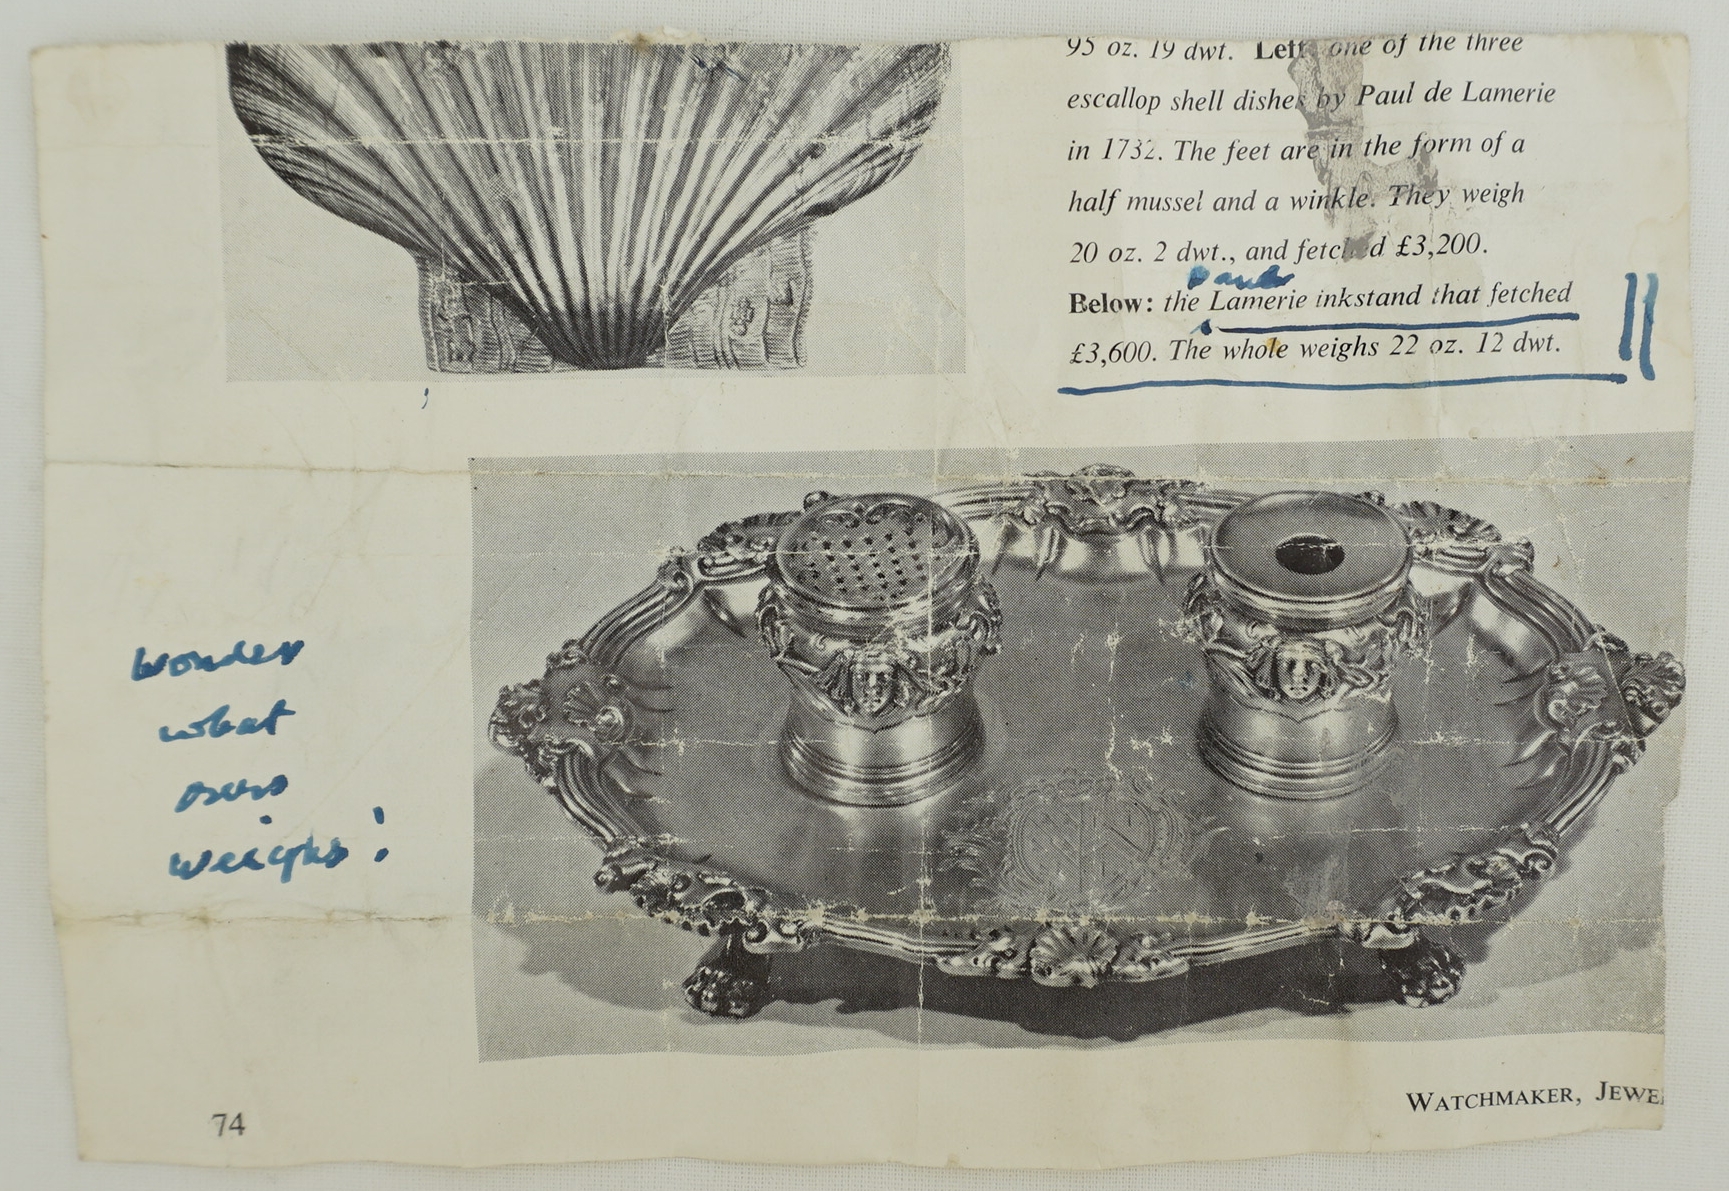 95 oz. 19 dwt. Left: one of the three
escallop shell dishes by Paul de Lamerie
in 1732. The feet are in the form of a
half mussel and a winkle. They weigh
20 oz. 2 dwt., and fetched £3,200.
Below: the Lamerie inkstand that fetched
£3,600. The whole weighs 22 oz. 12 dwt.
Wonder
what
ours
weighs!
74
WATCHMAKER, JEWE